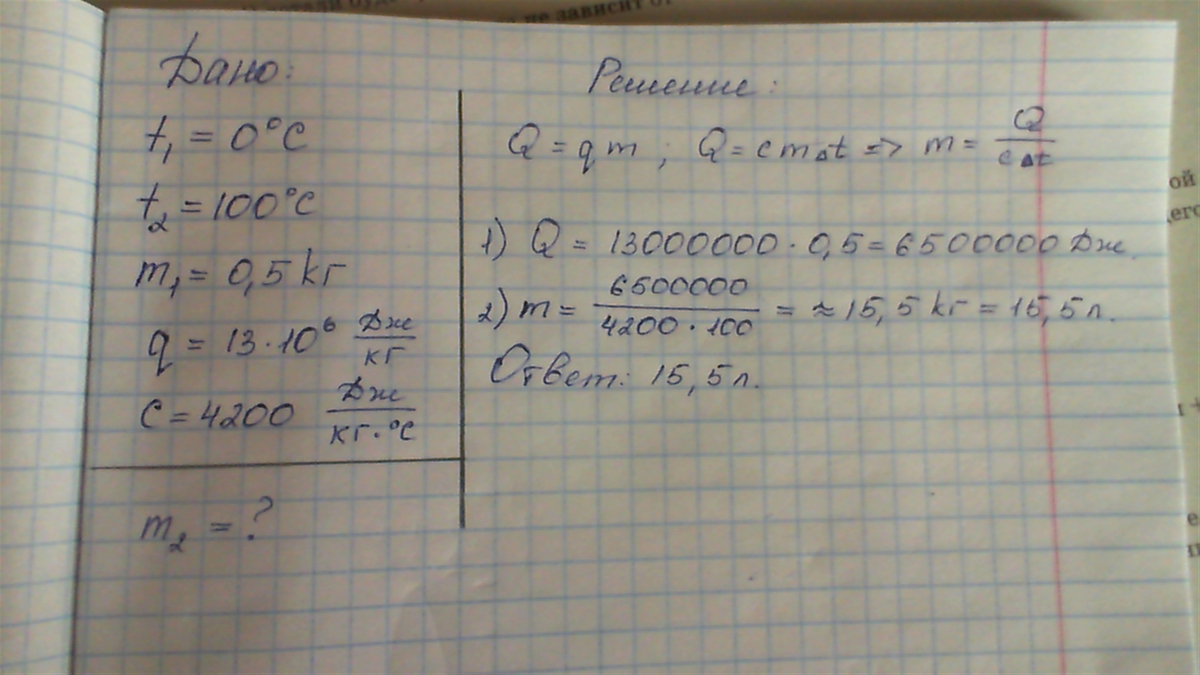 не зависит от
Дано:
t₁ = 0°C
t₂ = 100°C
m₁ = 0,5 кг
q = 13·10⁶ Дж/кг
c = 4200 Дж/кг·°C
m₂ = ?
Решение:
Q = qm ; Q = cm△t => m = Q/c△t
1) Q = 13000000 · 0,5 = 6500000 Дж.
2) m = 6500000/4200·100 = ≈ 15,5 кг = 15,5 л.
Ответ: 15,5 л.
ой